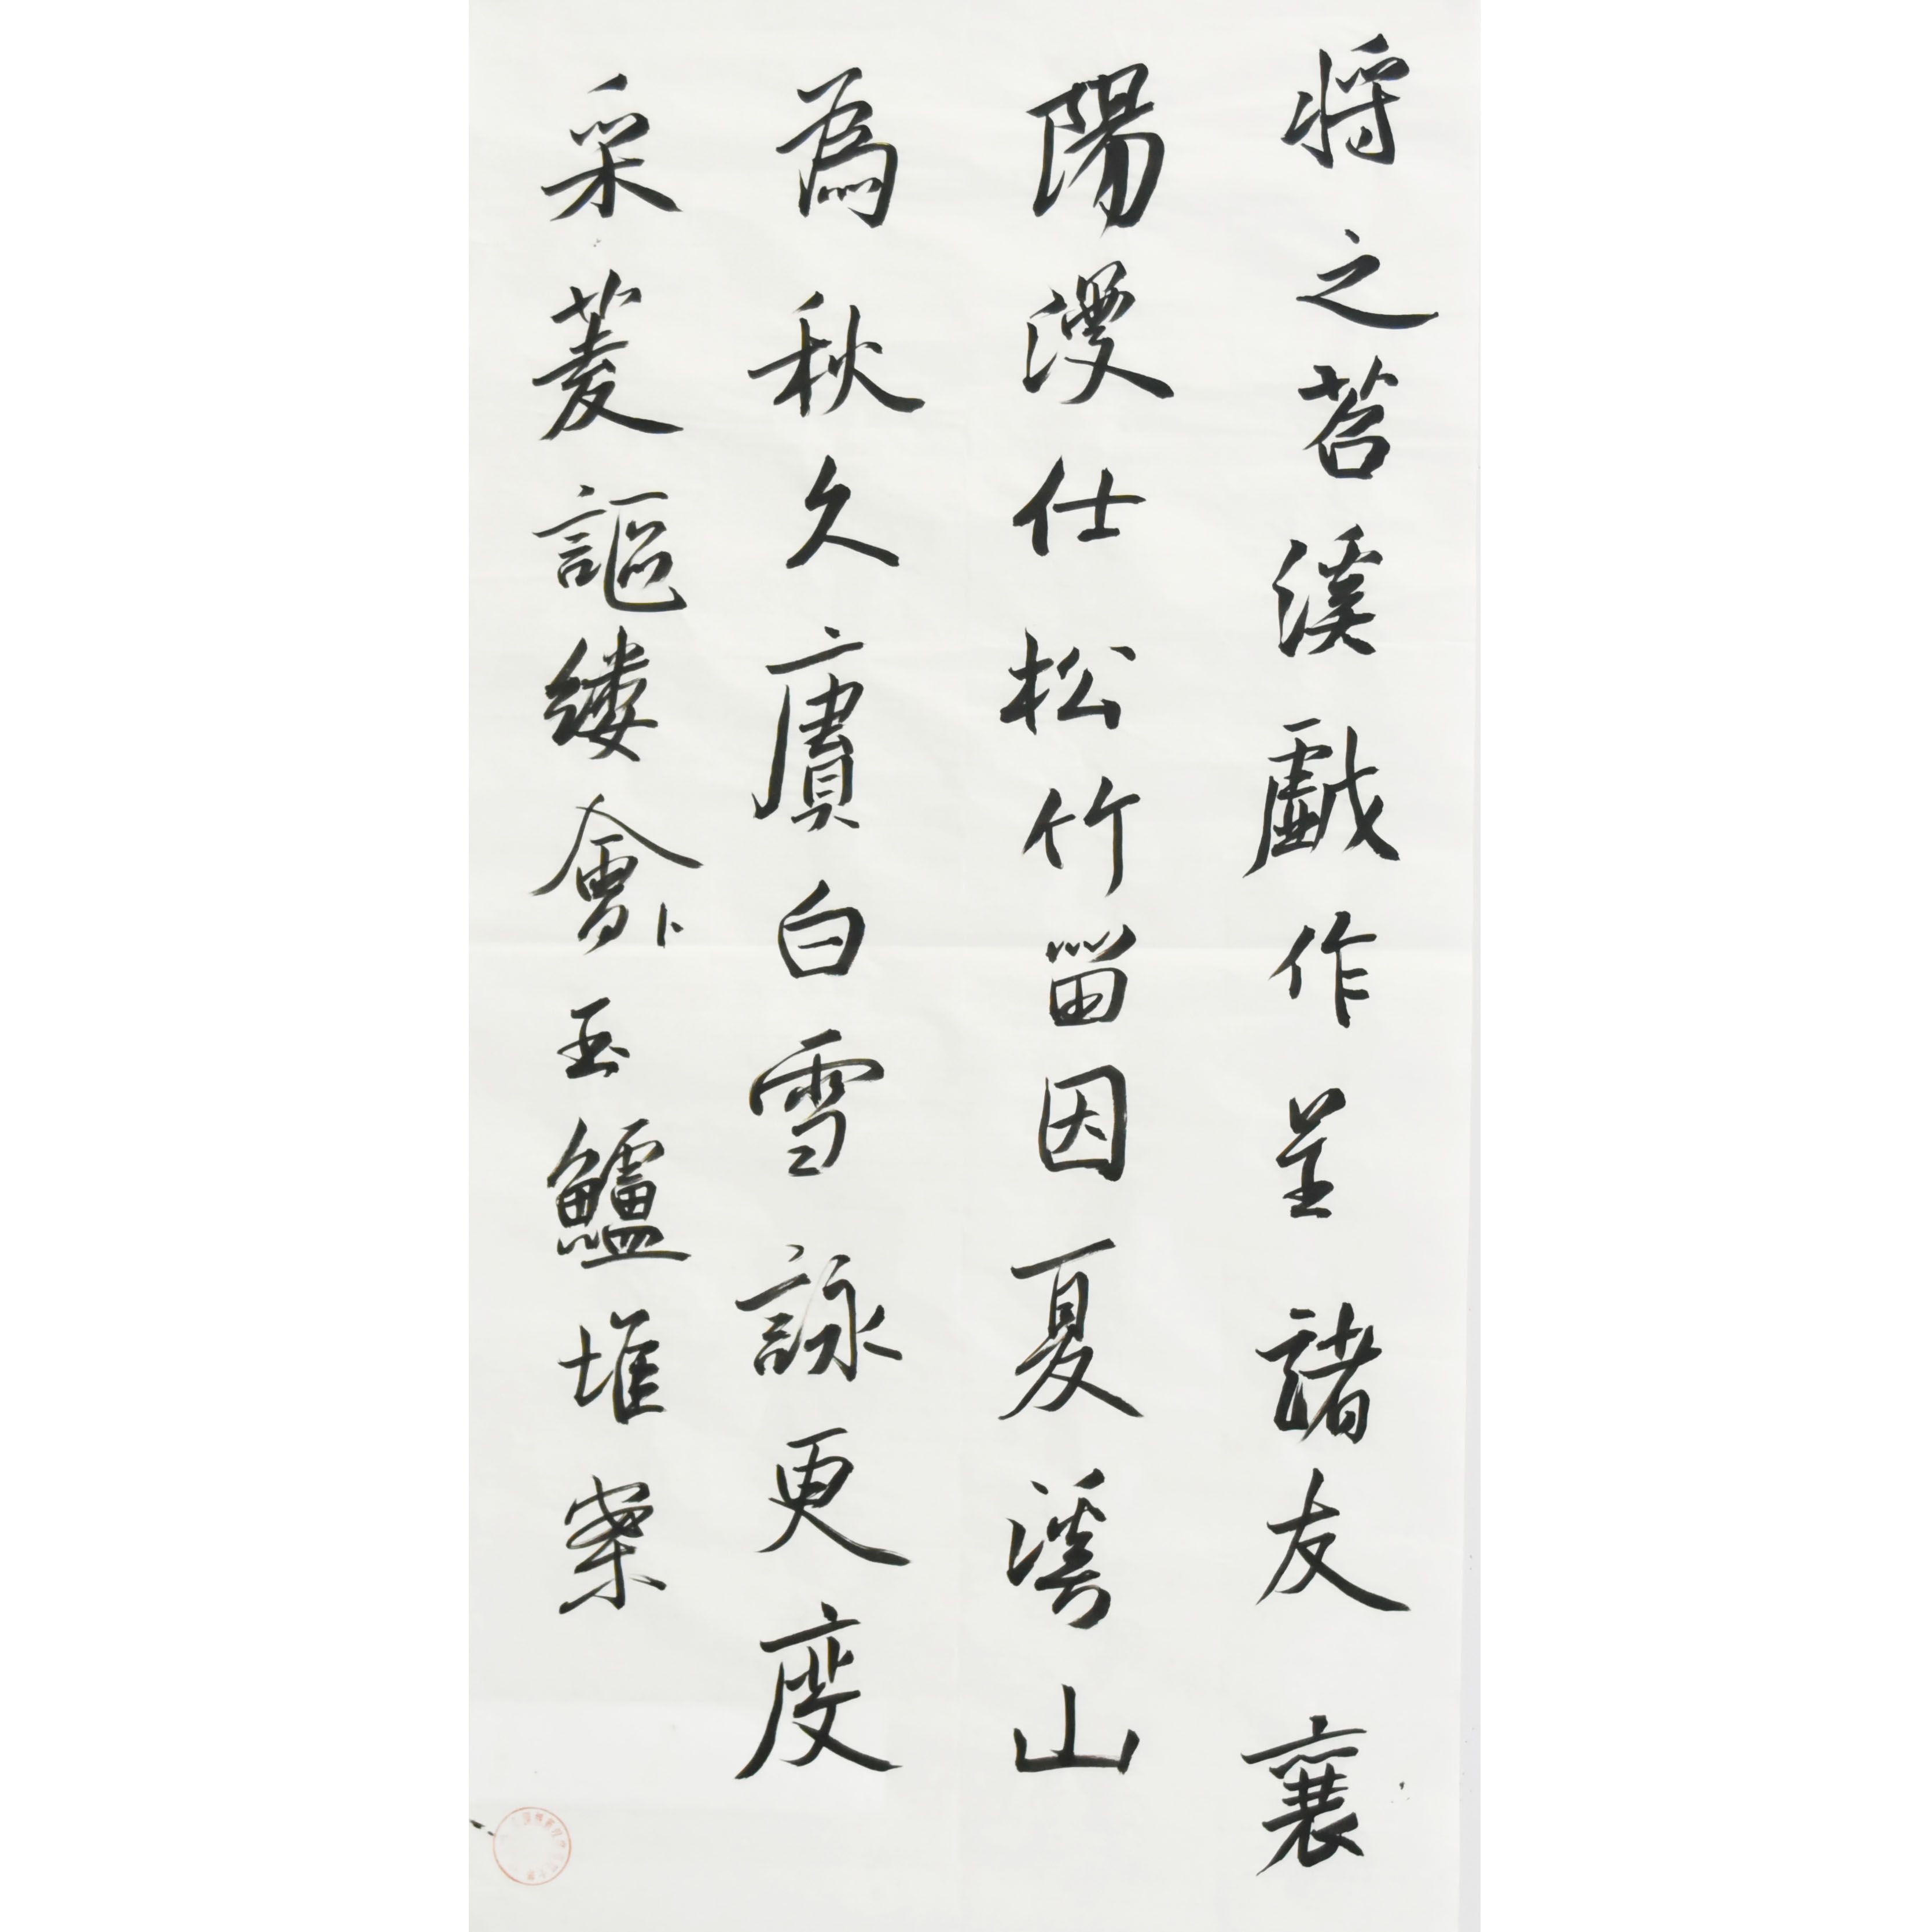 將之苕溪戲作呈諸友襄
陽漫仕松竹留因夏溪山
為秋久賡白雪詠更度
采菱謳縷會卜玉鱸堆案